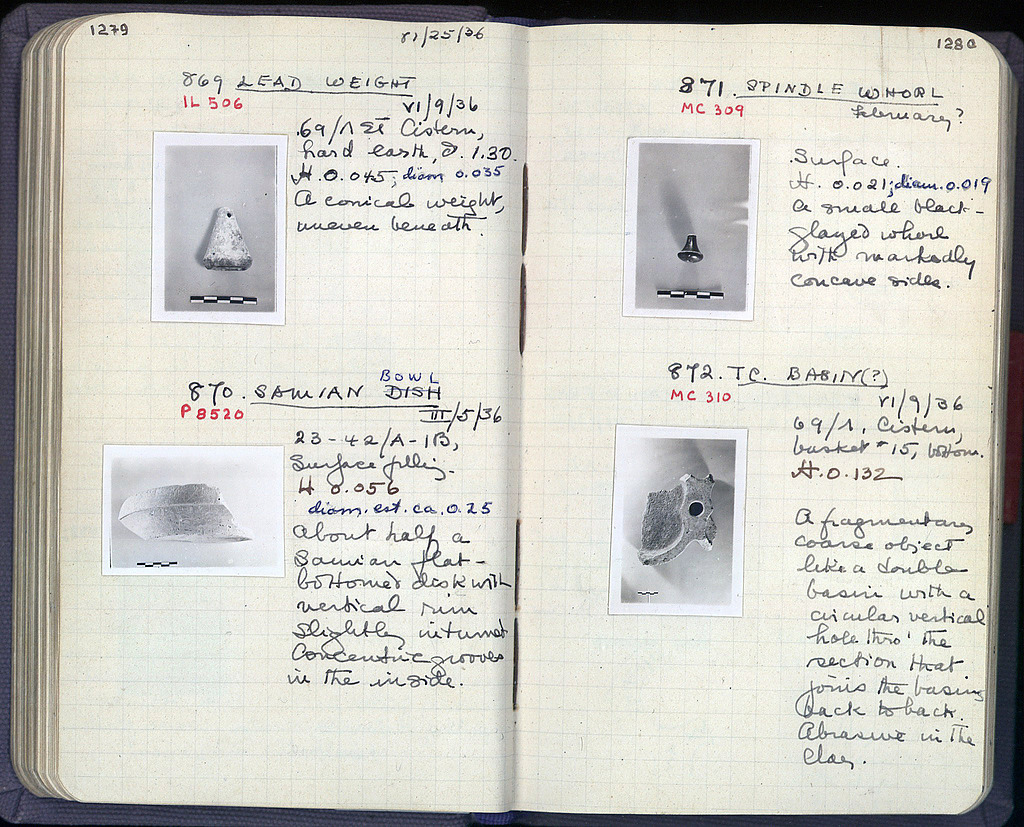 1279
VI/25/36
869 LEAD WEIGHT
IL 506
VI/9/36
69/Λ ΣΤ Cistern,
hard earth, δ. 1.30.
H. 0.045; diam. 0.035
A conical weight,
uneven beneath.
870. SAMIAN DISH
BOWL
P 8520
III/5/36
23-42/A-1B,
Surface filling.
H 0.056
diam. est. ca. 0.25
About half a
Samian flat-
bottomed dish with
vertical rim
slightly inturned
Concentric grooves
in the inside.
1280
871. SPINDLE WHORL
MC 309
February?
Surface.
H. 0.021; diam. 0.019
A small black-
glazed whorl
with markedly
concave sides.
872. TC. BASIN(?)
MC 310
VI/9/36
69/Λ, Cistern,
basket #15, bottom.
H. 0.132
A fragmentary
coarse object
like a double
basin with a
circular vertical
hole thro' the
section that
joins the basins
back to back.
Abrasive in the
clay.